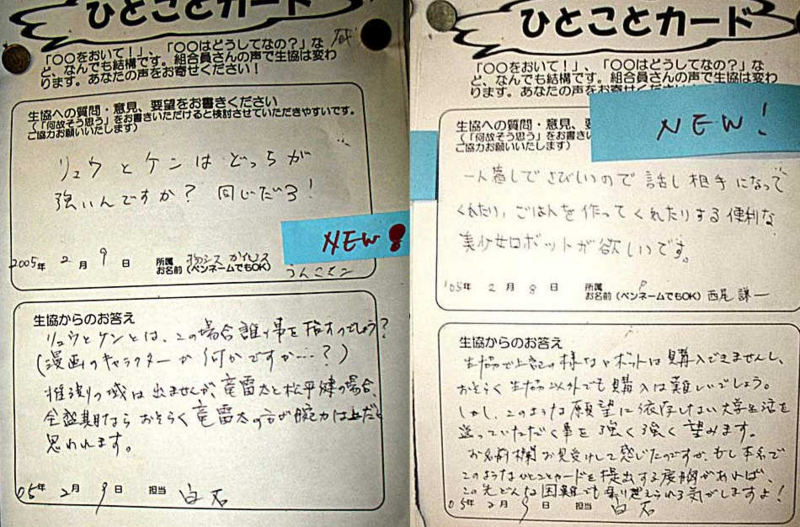 ひとことカード
「〇〇をおいて！」、「〇〇はどうしてなの？」な
ど、なんでも結構です。組合員さんの声で生協は変わ
ります。あなたの声をお寄せください！
生協への質問・意見、要望をお書きください
（「何故そう思う」をお書きいただけると検討させていただきやすいです。
ご協力お願いいたします）
リュウとケンはどっちが
強いんですか？ 同じだろ！
NEW
2005年 2月 9日
所属
お名前（ペンネームでもOK）
生協からのお答え
リュウとケンとは、この場合誰の事を指すのでしょう？
（漫画のキャラクターか何かですか…？）
推測の域は出ませんが、竜雷太と松平健の場合、
全盛期ならおそらく竜雷太の方が腕力は上だと
思われます。
05年 2月 9日 担当 白石
ひとことカード
「〇〇をおいて！」、「〇〇はどうしてなの？」な
ど、なんでも結構です。組合員さんの声で生協は変わ
ります。あなたの声をお寄せください！
生協への質問・意見、要
（「何故そう思う」をお書きい
ご協力お願いいたします）
NEW!
一人暮しでさびしいので話し相手になって
くれたり、ごはんを作ってくれたりする便利な
美少女ロボットが欲しいです。
'05年 2月 8日
所属
お名前（ペンネームでもOK） 西尾 謙一
生協からのお答え
生協で上記の様なロボットは購入できませんし、
おそらく生協以外でも購入は難しいでしょう。
しかし、このような願望に依存しない大学生活を
送っていただく事を強く強く望みます。
お名前欄お見受けして感じたのですが、もし本名で
このようなひとことカードを提出する度胸があれば、
この先どんな困難でも乗り越えられる気がしますよ！
05年 2月 9日 担当 白石